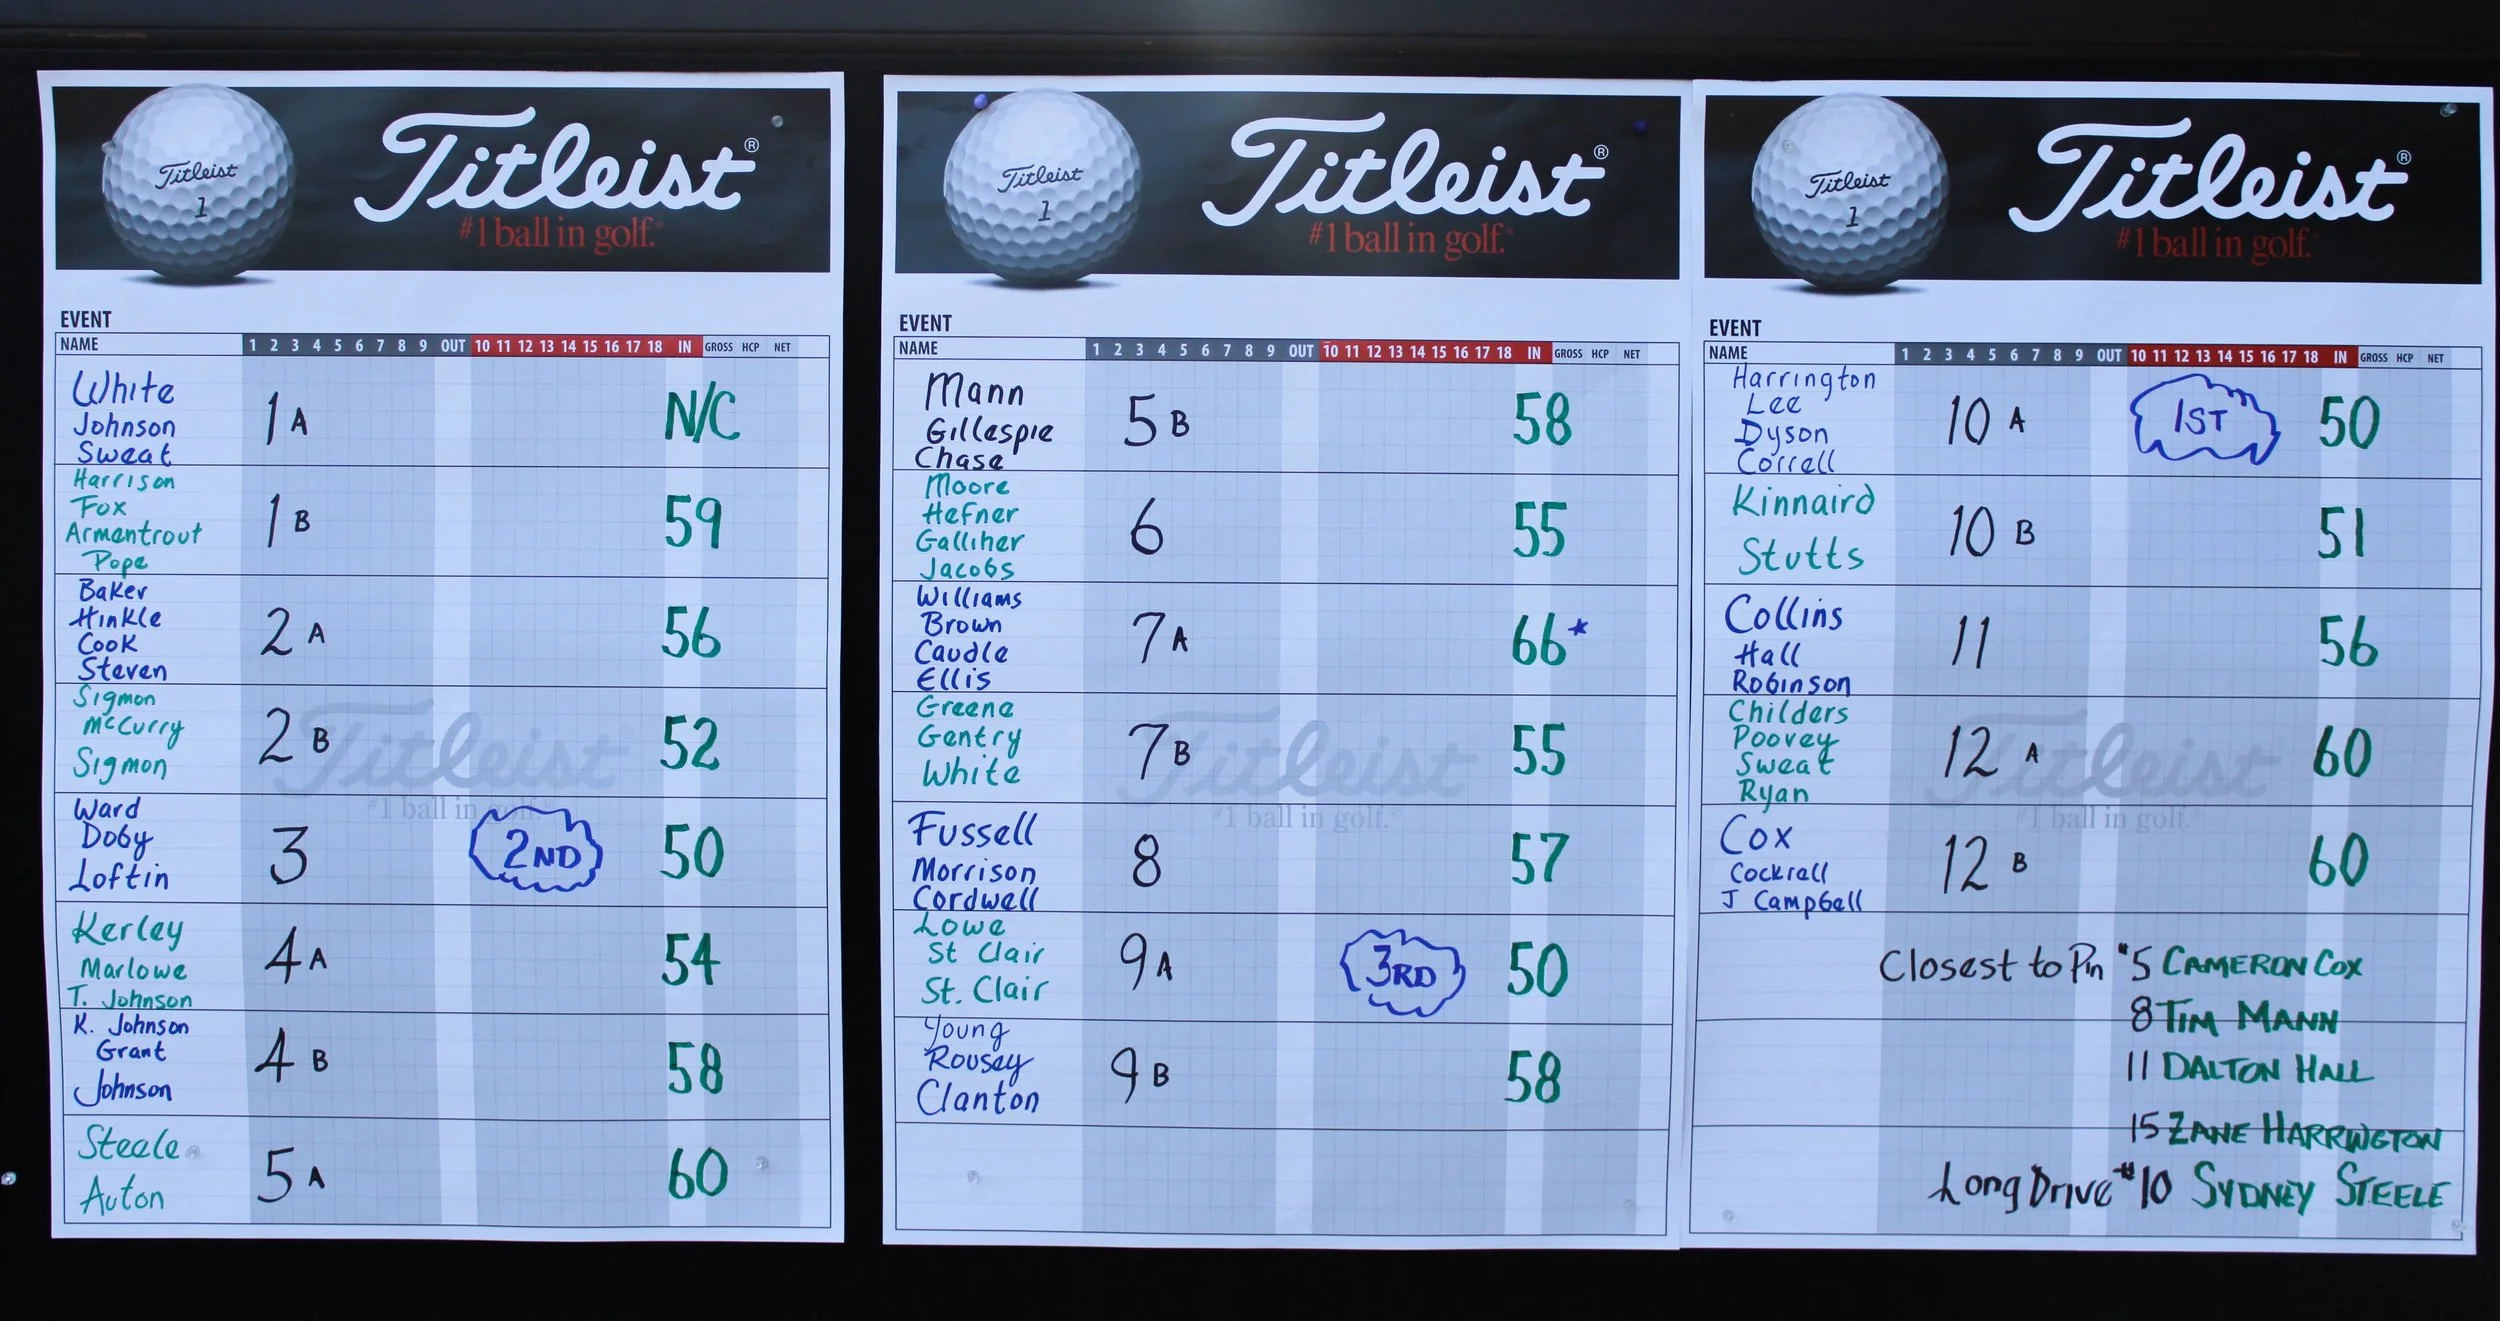 Titleist®
Titleist
1
#1 ball in golf.®
EVENT
NAME 1 2 3 4 5 6 7 8 9 OUT 10 11 12 13 14 15 16 17 18 IN GROSS HCP NET
White
Johnson
Sweat
1 A N/C
Harrison
Fox
Armentrout
Pope
1 B 59
Baker
Hinkle
Cook
Steven
2 A 56
Sigmon
McCurry
Sigmon
2 B 52
Titleist
#1 ball in golf.®
Ward
Doby
Loftin
3 2ND 50
Kerley
Marlowe
T. Johnson
4 A 54
K. Johnson
Grant
Johnson
4 B 58
Steele
Auton
5 A 60
Titleist®
Titleist
1
#1 ball in golf.®
EVENT
NAME 1 2 3 4 5 6 7 8 9 OUT 10 11 12 13 14 15 16 17 18 IN GROSS HCP NET
Mann
Gillespie
Chase
5 B 58
Moore
Hefner
Galliher
Jacobs
6 55
Williams
Brown
Caudle
Ellis
7 A 66*
Greene
Gentry
White
7 B 55
Titleist
#1 ball in golf.®
Fussell
Morrison
Cordwell
8 57
Lowe
St Clair
St. Clair
9 A 3RD 50
Young
Rousey
Clanton
9 B 58
Titleist®
Titleist
1
#1 ball in golf.®
EVENT
NAME 1 2 3 4 5 6 7 8 9 OUT 10 11 12 13 14 15 16 17 18 IN GROSS HCP NET
Harrington
Lee
Dyson
Correll
10 A 1ST 50
Kinnaird
Stutts
10 B 51
Collins
Hall
Robinson
11 56
Childers
Poovey
Sweat
Ryan
12 A 60
Titleist
#1 ball in golf.®
Cox
Cockrall
J Campbell
12 B 60
Closest to Pin #5 CAMERON COX
8 TIM MANN
11 DALTON HALL
15 ZANE HARRINGTON
Long Drive #10 SYDNEY STEELE